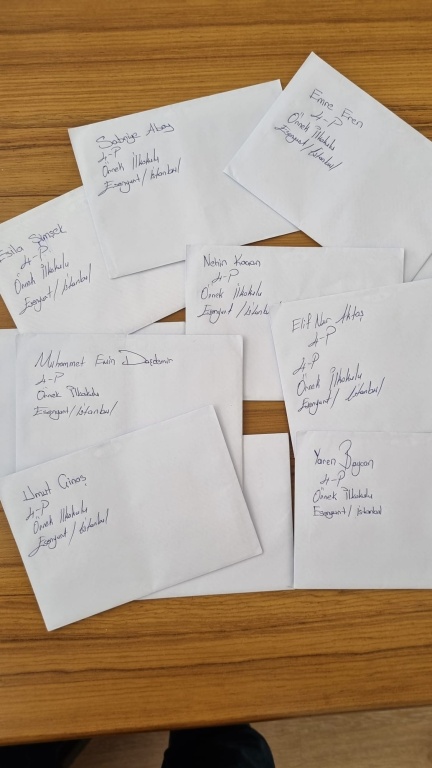 Sabriye Abay
4-P
Örnek İlkokulu
Esenyurt/İstanbul
Emre Eren
4-P
Örnek İlkokulu
Esenyurt/İstanbul
Esila Şimşek
4-P
Örnek İlkokulu
Esenyurt/İstanbul
4-P
Örnek İlkokulu
Esenyurt/İstanbul
Elif Nur Aktaş
4-P
4-P
Örnek İlkokulu
Esenyurt/İstanbul
Muhammet Emin Daşdemir
4-P
Örnek İlkokulu
Esenyurt/İstanbul
Yaren Baycan
4-P
Örnek İlkokulu
Esenyurt/İstanbul
Umut
4-P
Örnek İlkokulu
Esenyurt/İstanbul